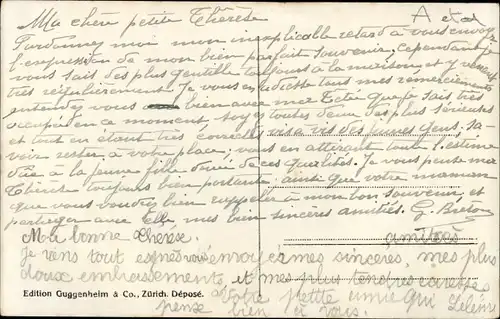 Ma chère petite Thérèse
A
Pardonnez moi mon inexplicable retard à vous envoyer
l'expression de mon bien parfait souvenir, cependant je
vous sais des plus gentille toujours à la maison et y venant
très régulièrement. Je vous en adresse tous mes remerciements
entendez vous bien avec ma que je sais très
occupée en ce moment, soyez toutes deux des plus sérieuses
et tout en étant très correctes vis à vis des jeunes gens. Sa
voir rester à votre place, vous en attirant toute l'estime
dûe à la jeune fille douée de ces qualités. Je vous pense ma
Thérèse toujours bien portante ainsi que votre maman
que vous voudrez bien rappeler à mon bon souvenir et
partager avec Elle mes bien sincères amitiés. G. Breton
Ma bonne Thérèse.
amitiés
Je viens tout exprès vous envoyer mes sincères, mes plus
doux embrassements et mes plus tendres caresses
Votre petite amie qui
pense bien à vous.
Edition Guggenheim & Co., Zürich. Déposé.